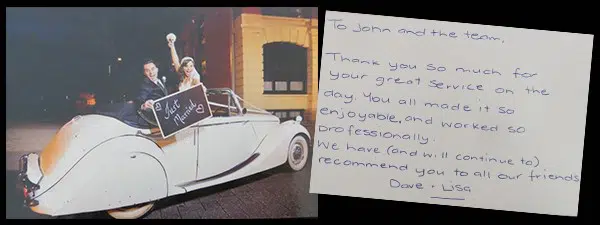 Just
Married
To John and the team.
Thank you so much for
your great service on the
day. You all made it so
enjoyable, and worked so
professionally.
We have (and will continue to)
recommend you to all our friends
Dave + Lisa